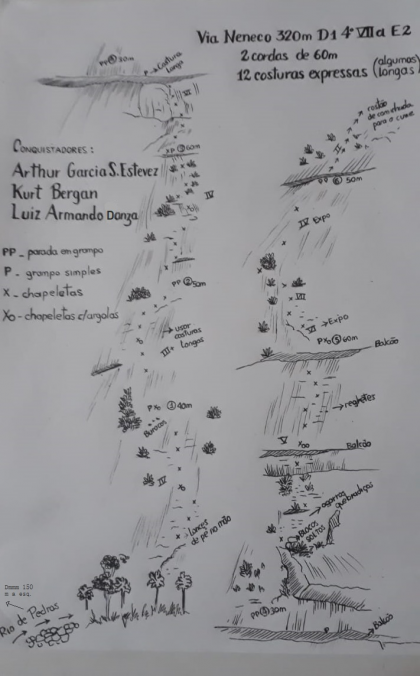 Via Neneco 320m D1 4º VIIa E2
2 cordas de 60m
12 costuras expressas (algumas longas)
PP ④ 30m
P → Costura longa
VI
CONQUISTADORES:
Arthur Garcia S. Estevez
Kurt Bergan
Luiz Armando Danza
PP - parada em grampo
P - grampo simples
X - chapeletas
Xo - chapeletas c/argolas
60m
IV
PP ② 50m
→ usar costuras longas
III+
PXo ① 40m
Blocos
IV
Lances de pé na mão
Rio de Pedras
rodão de caminhada para o cume
PP ⑥ 50m
IV Expo
VII
VI
→ Expo
PXo ⑤ 60m
Balcão
→ regletes
V
Xoo
Balcão
→ agarras quebradiças
BLOCOS SOLTOS
30m
Balcão